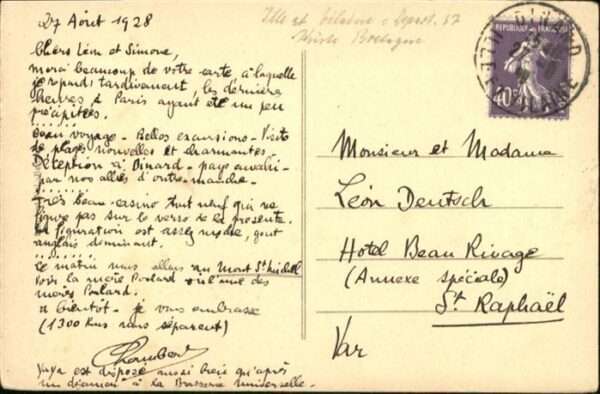 27 Août 1928
Chers Léon et Simone,
merci beaucoup de votre carte à laquelle
je réponds tardivement, les dernières
heures à Paris ayant été un peu
précipitées.
Beau voyage - Belles excursions - Visite
de plages nouvelles et charmantes
Déception à Dinard - pays envahi -
par nos alliés d'outre-manche -
Très beau casino tout neuf qui ne
figure pas sur le verso de la présente.
La figuration est assez moche, goût
anglais dominant.
Ce matin nous allons au Mont St Michel
voir la mère Poulard
mères Poulard.
à bientôt - je vous embrasse
(1300 Kms nous séparent)
est disposé aussi bien qu'après
un diamant à la Brasserie Universelle -
Ille et Vilaine = Depart. 37
Bretagne
DINARD
ILLE-ET-VILAINE
REPUBLIQUE FRANÇAISE
40c
Monsieur et Madame
Léon Deutsch
Hôtel Beau Rivage
(Annexe spéciale)
St Raphaël
Var